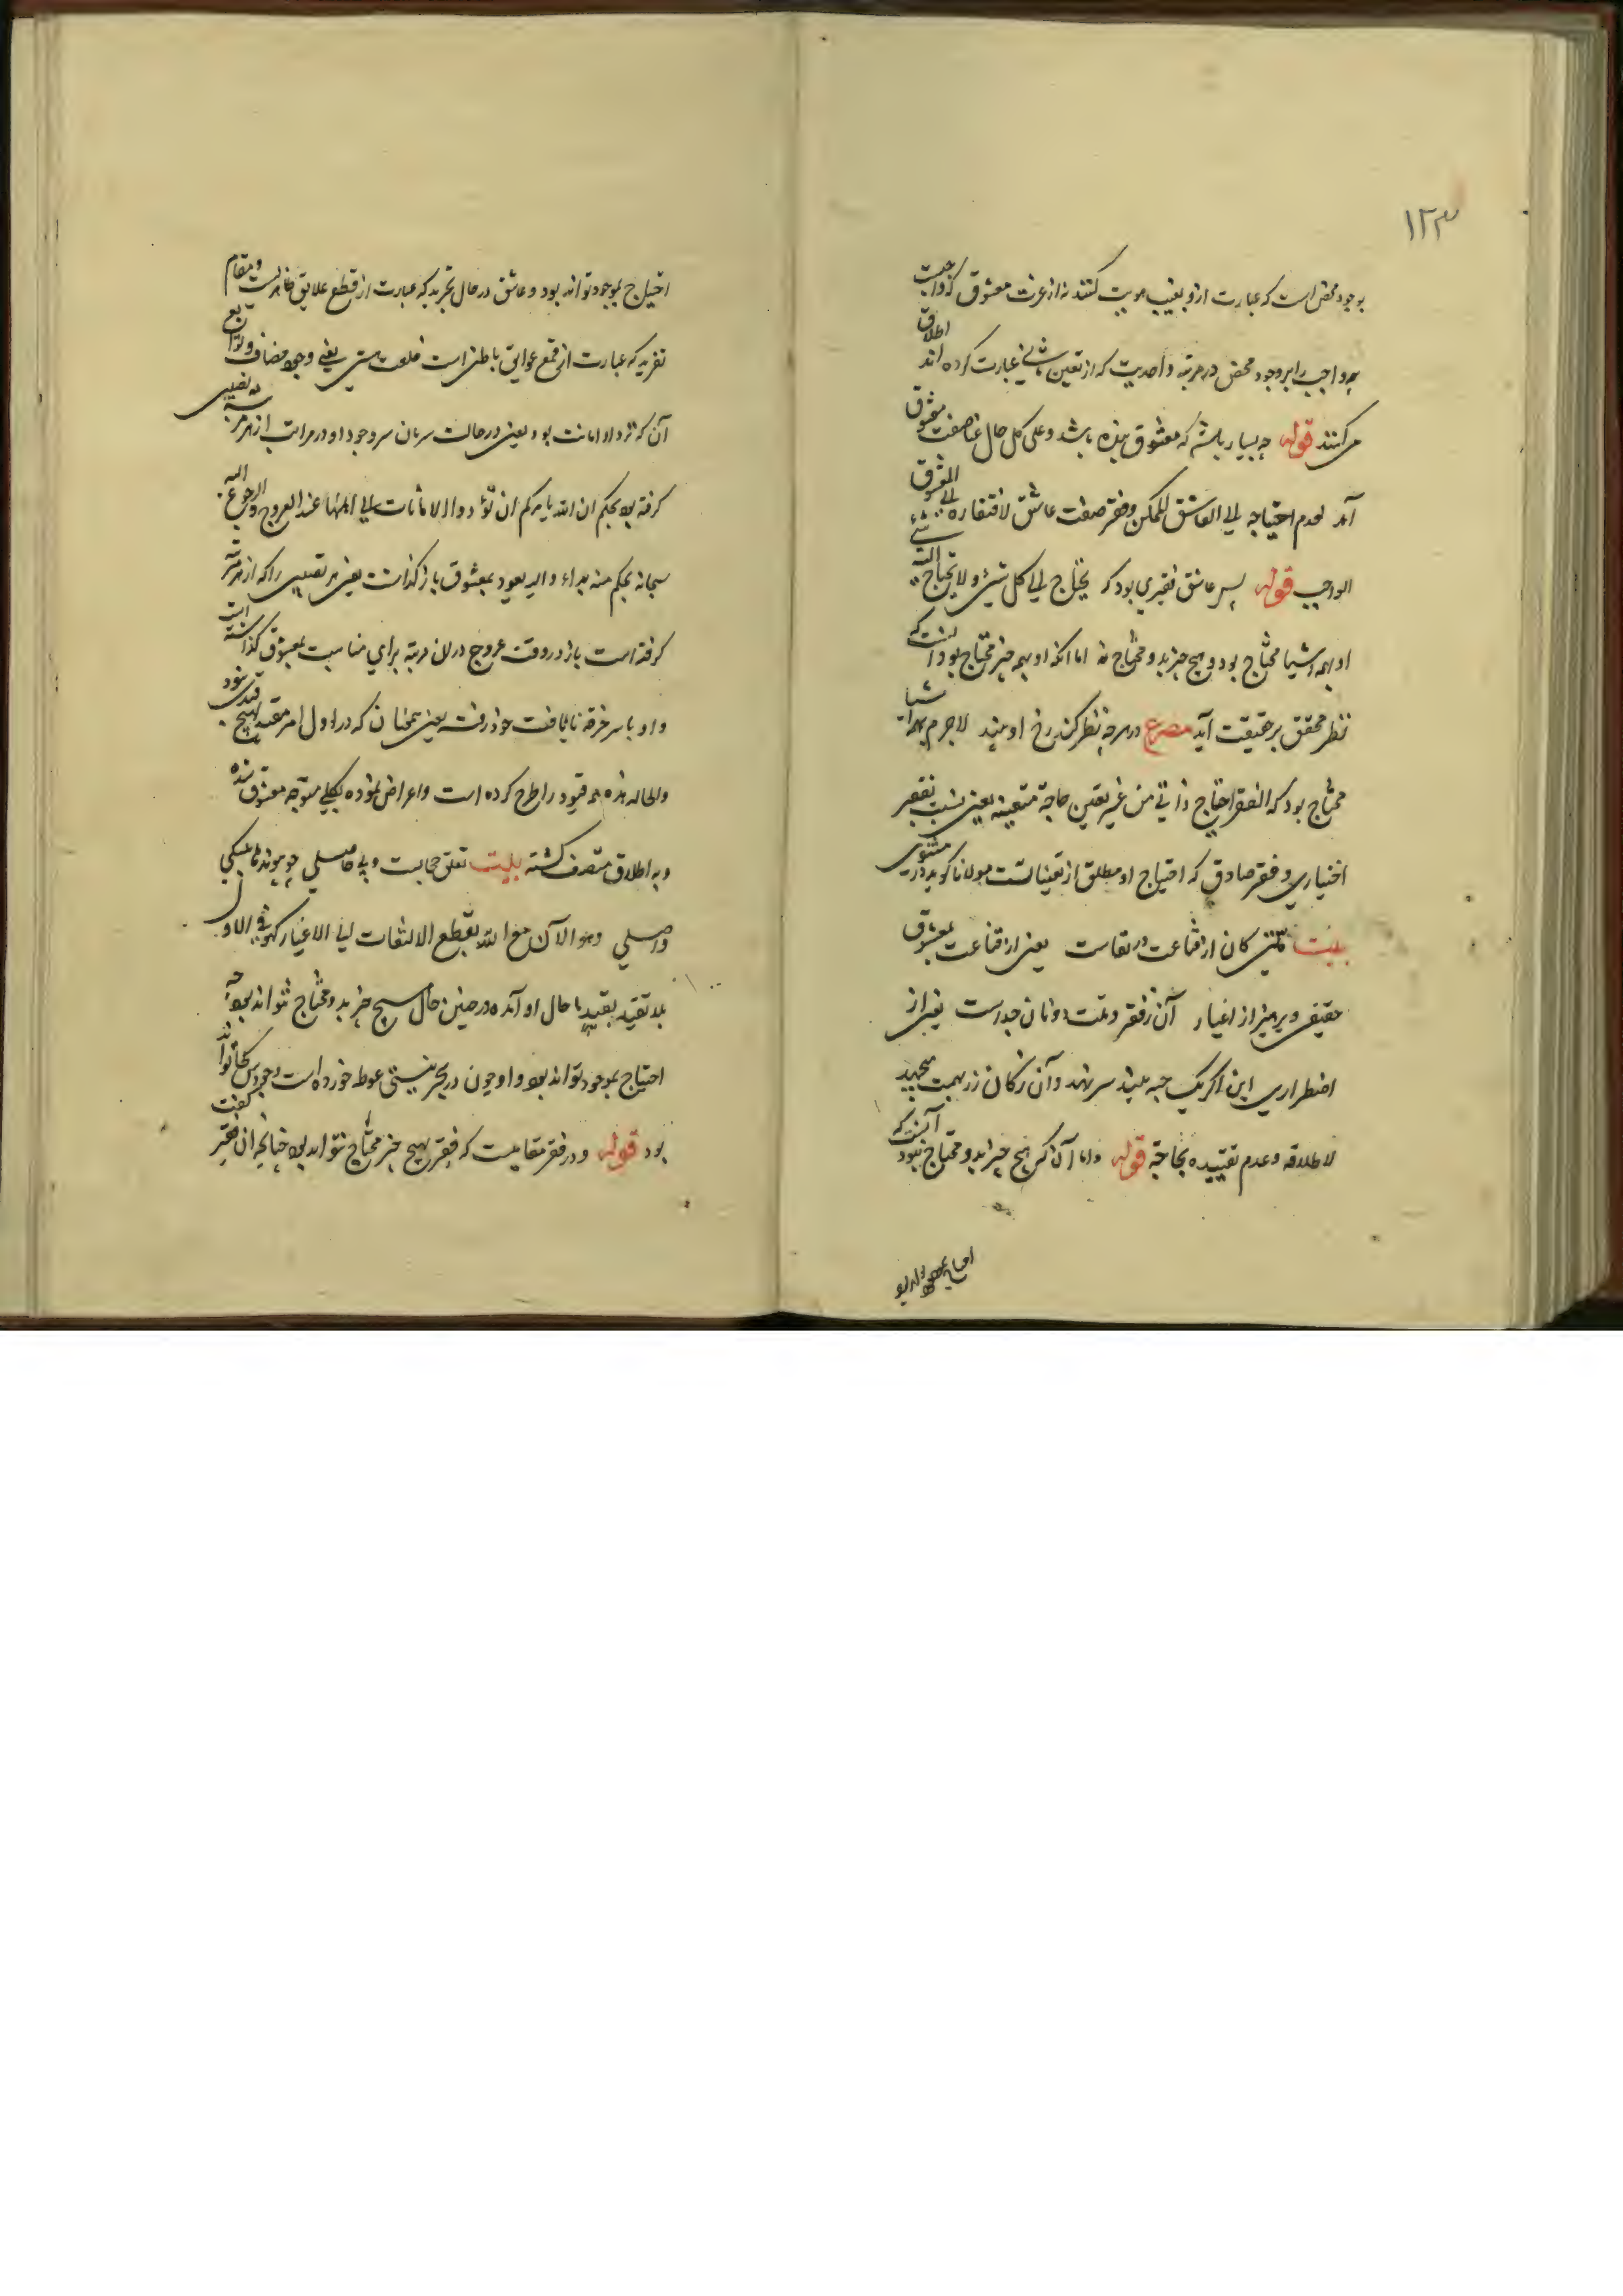 ۱۲۳
بوجود محض است که عبارت ازو بغیب هویت کنند نه از عزت معشوق که واجبست
چه واجب را بر وجود محض در مرتبه واحدیت که از تعین ثانی عبارت کرده اند اطلاق
می کنند قوله چه بسیار باشد که معشوق بنده باشد وعلی کل حال غنا صفت معشوق
آمد لعدم احتیاجه الی العاشق الممکن وفقر صفت عاشق لافتقاره الی المعشوق
الواجب قوله پس عاشق فقیری بود که یحتاج الی کل شیء ولا یحتاج الیه شیء
او بهمه اشیا محتاج بود و هیچ چیز بدو محتاج نه اما انکه او بهمه چیز محتاج بود آنست که
نظر محقق بر حقیقت آید مصرع در هرچه نظر کند رخ او بیند لاجرم بهمه اشیا
محتاج بود که الفقر احتیاج ذاتی من غیر تعین حاجة متعینه یعنی نسبت بفقر
اختیاری و فقر صادق که احتیاج او مطلق از تعینات است مولانا گوید در مثنوی
بیت کان از قناعت در بقاست یعنی از قناعت بمعشوق
حقیقی و پرهیز از اغیار آن ز فقر و قلت دونان جداست یعنی از
اضطراری این اگر یک حبه بیند سر نهد وآن ز کان زر بهمت میجهد
لاطلاقه وعدم تقییده بحاجة قوله واما آن که هیچ چیز بدو محتاج نبود آنست که
احتیاج بموجود تواند بود
احتیاج بموجود تواند بود و عاشق در حال تجرید که عبارت از قطع علایق ظاهر است و مقام
تفرید که عبارت از قمع عوایق باطن است خلعت هستی یعنی وجود مضاف و توابع
آن که نزد او امانت بود یعنی در حالت سریان سر وجود او در مراتب از هر مرتبه نصیبی
کرفته بود بحکم ان الله یامرکم ان تؤدوا الامانات الی اهلها عند العروج والرجوع الیه
سبحانه بحکم منه بداء والیه یعود بمعشوق باز گذاشت یعنی هر نصیبی را که از هر مرتبه
کرفته است باز در وقت عروج در ان مرتبه برای مناسبت بمعشوق گذاشته است
واو با سر خرقه نایافت خود رفت یعنی همچنان که در اول امر مقید بهیچ قیدی نبود
والحاله هذه همه قیود را طرح کرده است واعراض نموده بکلی متوجه معشوق شده
وبه اطلاق متصف گشته بیت تعلق حجابست و بی حاصلی چو پیوندها بگسلی
واصلی وهو الآن مع الله بقطع الالتفات الی الاغیار کهو فی الاول
بلا تقید بقید ما حال او آمده در چنین حال هیچ چیز بدو محتاج نتواند بود چه
احتیاج بموجود تواند بود و او چون در بحر نیستی غوطه خورده است وجودش کجا تواند
بود قوله و در فقر مقامیست که فقیر بهیچ چیز محتاج نتواند بود چنانچه ان فقیر گفت